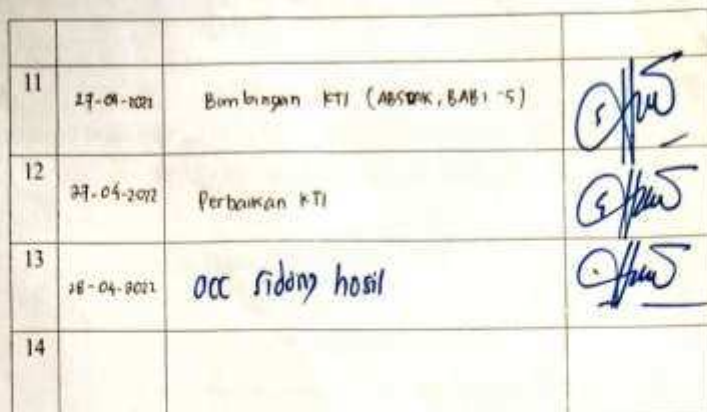 11 27-04-2022 Bimbingan KTI (ABSTRAK, BAB 1-5)
12 27-04-2022 Perbaikan KTI
13 28-04-2022 acc sidang hasil
14